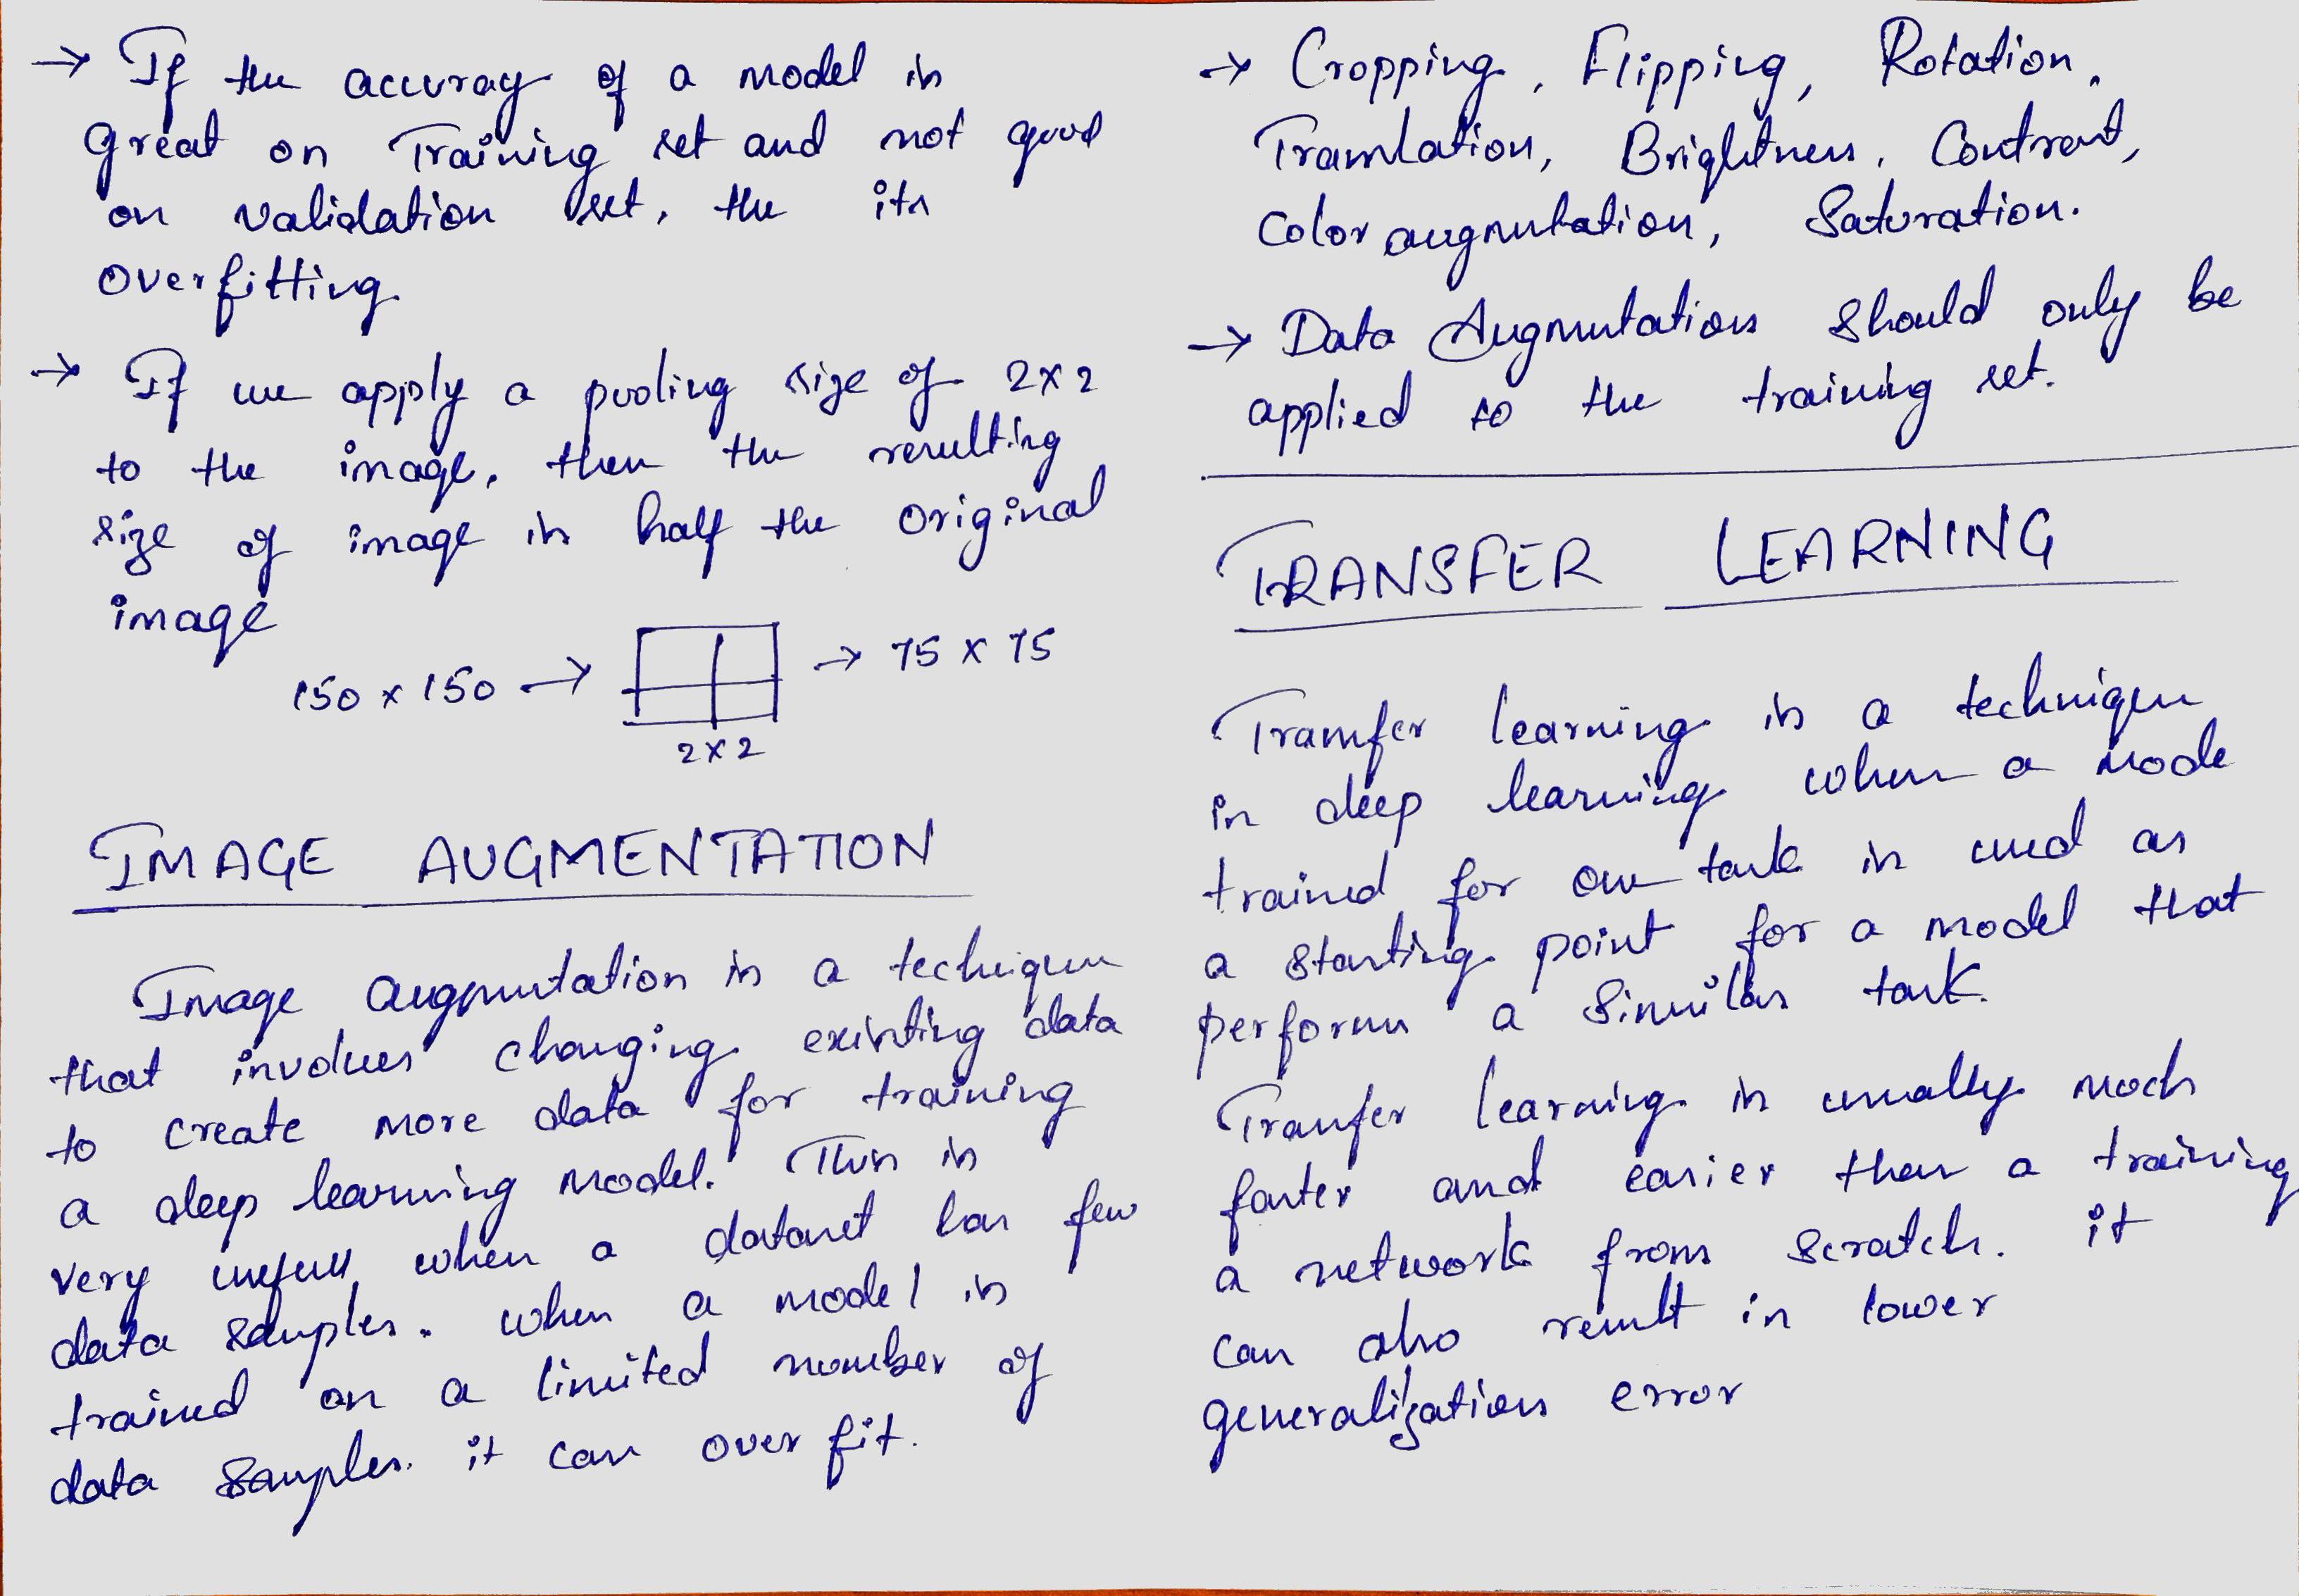 → If the accuray of a model is
great on Training set and not good
on validation set, the its
overfitting.
→ If we apply a pooling size of 2x2
to the image, then the resulting
size of image is half the original
image
150 x 150 → → 75 x 75
2x2
IMAGE AUGMENTATION
Image augmentation is a technique
that involves changing existing data
to create more data for training
a deep learning model. This is
very usefull when a dataset has few
data samples. when a model is
trained on a limited number of
data samples. it can over fit.
→ Cropping, Flipping, Rotation,
Translation, Brightness, Contrast,
Color augmentation, Saturation.
→ Data Augmentation should only be
applied to the training set.
TRANSFER LEARNING
Transfer learning is a technique
in deep learning when a mode
trained for one task is used as
a starting point for a model that
performs a similar task.
Transfer learning is usually much
faster and easier than a training
a network from scratch. it
can also result in lower
generalization error